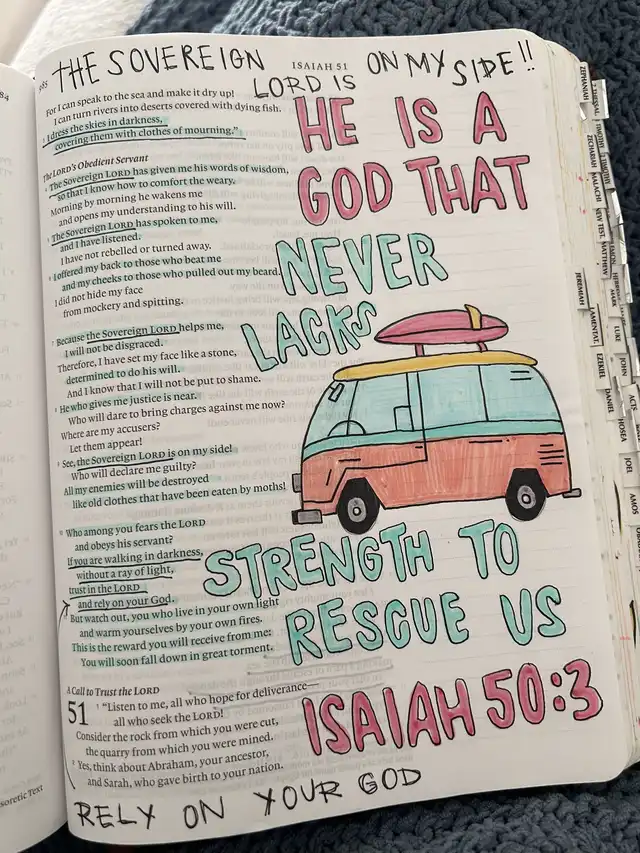 THE SOVEREIGN
LORD IS
ON MY SIDE!!
985
ISAIAH 51
For I can speak to the sea and make it dry up!
I can turn rivers into deserts covered with dying fish.
3 I dress the skies in darkness,
covering them with clothes of mourning.”
The LORD’s Obedient Servant
4 The Sovereign LORD has given me his words of wisdom,
so that I know how to comfort the weary.
Morning by morning he wakens me
and opens my understanding to his will.
5 The Sovereign LORD has spoken to me,
and I have listened.
I have not rebelled or turned away.
6 I offered my back to those who beat me
and my cheeks to those who pulled out my beard.
I did not hide my face
from mockery and spitting.
7 Because the Sovereign LORD helps me,
I will not be disgraced.
Therefore, I have set my face like a stone,
determined to do his will.
And I know that I will not be put to shame.
8 He who gives me justice is near.
Who will dare to bring charges against me now?
Where are my accusers?
Let them appear!
9 See, the Sovereign LORD is on my side!
Who will declare me guilty?
All my enemies will be destroyed
like old clothes that have been eaten by moths!
10 Who among you fears the LORD
and obeys his servant?
If you are walking in darkness,
without a ray of light,
trust in the LORD
and rely on your God.
11 But watch out, you who live in your own light
and warm yourselves by your own fires.
This is the reward you will receive from me:
You will soon fall down in great torment.
A Call to Trust the LORD
51
1 “Listen to me, all who hope for deliverance—
all who seek the LORD!
Consider the rock from which you were cut,
the quarry from which you were mined.
2 Yes, think about Abraham, your ancestor,
and Sarah, who gave birth to your nation.
HE IS A
GOD THAT
NEVER
LACKS
STRENGTH TO
RESCUE US
ISAIAH 50:3
RELY ON YOUR GOD
84
soretic Text
ZEPHANIAH
ZECHARIAH
MALACHI
NEW TEST.
MATTHEW
MARK
LUKE
JOHN
ACTS
JEREMIAH
LAMENTAT.
EZEKIEL
DANIEL
HOSEA
JOEL
AMOS